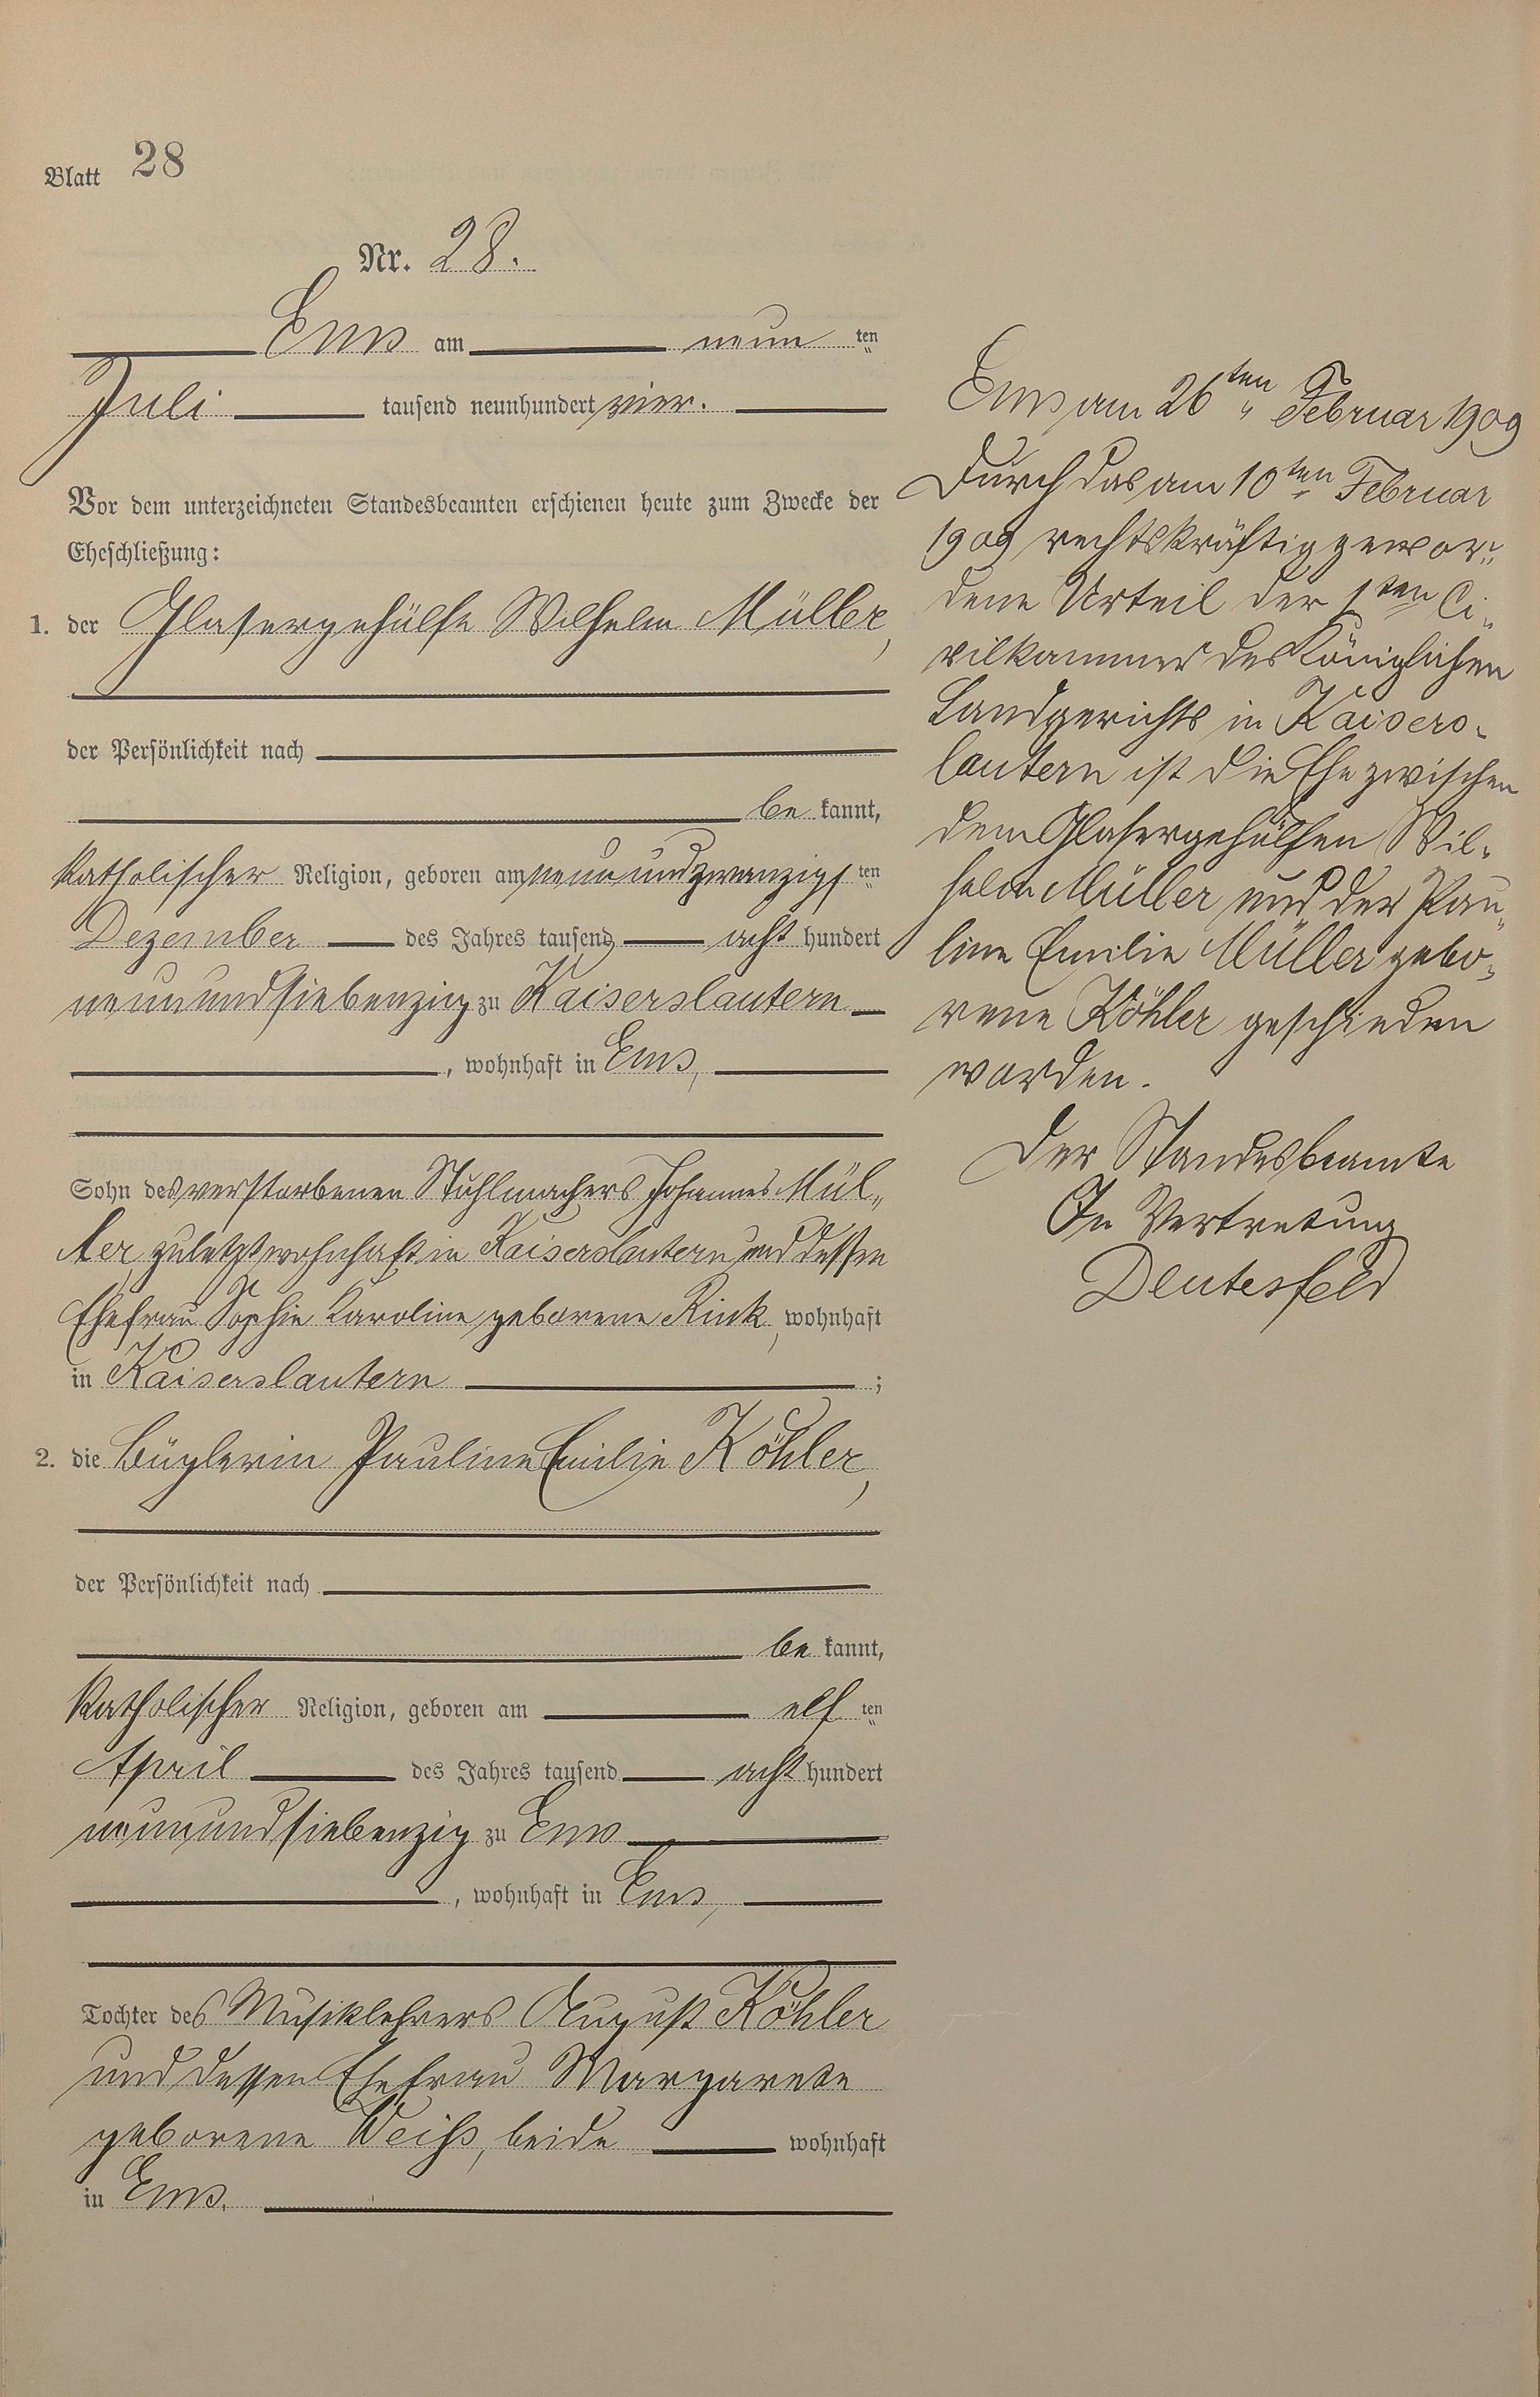 Blatt 28
Nr. 28.
Ems am neun ten
Juli tausend neunhundert vier.
Vor dem unterzeichneten Standesbeamten erschienen heute zum Zwecke der
Eheschließung:
1. der Glasergehülfe Wilhelm Müller,
der Persönlichkeit nach
be kannt,
katholischer Religion, geboren am neunundzwanzigs ten
Dezember des Jahres tausend acht hundert
neunundsiebenzig zu Kaiserslautern
, wohnhaft in Ems,
Sohn des verstorbenen Stuhlmachers Johannes Mül„
ler, zuletzt wohnhaft in Kaiserslautern und dessen
Ehefrau Sophie Karoline geborene Rink, wohnhaft
in Kaiserslautern ;
2. die Büglerin Pauline Emilie Köhler,
der Persönlichkeit nach
be kannt,
katholischer Religion, geboren am elf ten
April des Jahres tausend acht hundert
neunundsiebenzig zu Ems
, wohnhaft in Ems,
Tochter des Musiklehrers August Köhler
und dessen Ehefrau Margarete
geborene Weihs, beide wohnhaft
in Ems.
Ems am 26ten Februar 1909
Durch das am 10ten Februar
1909 rechtskräftig gewor„
dene Urteil der 1ten Ci„
vilkammer des Königlichen
Landgerichts in Kaisers„
lautern ist die Ehe zwischen
dem Glasergehülfen Wil„
helm Müller und der Pau„
line Emilie Müller gebo„
rene Köhler geschieden
worden.
Der Standesbeamte
In Vertretung
Deutesfeld